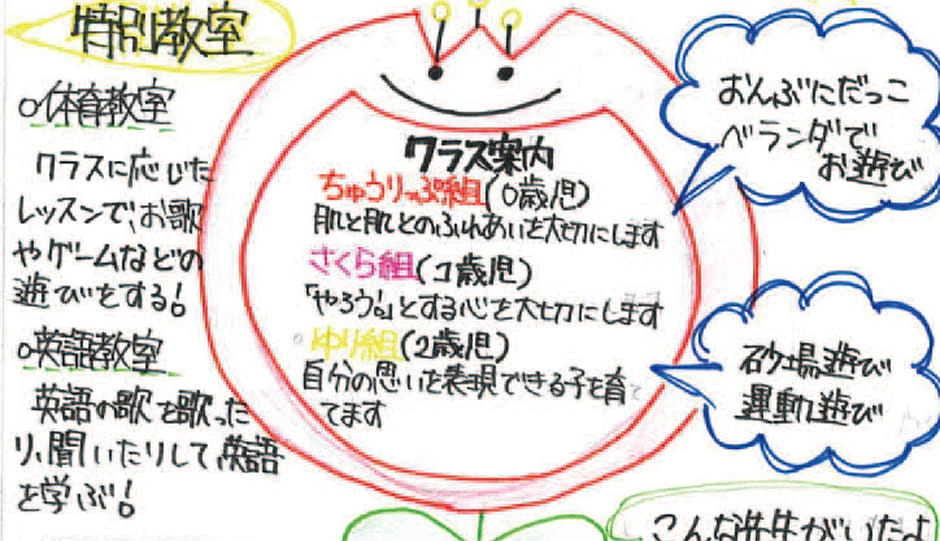 特別教室
○体育教室
クラスに応じた
レッスンで、お歌
やゲームなどの
遊びをする!
○英語教室
英語の歌を歌った
り、聞いたりして、英語
を学ぶ!
クラス案内
ちゅうりっぷ組(0歳児)
肌と肌とのふれあいを大切にします
さくら組(1歳児)
「やろう。」とする心を大切にします
ゆり組(2歳児)
自分の思いを表現できる子を育
てます
おんぶにだっこ
ベランダで
お遊び
砂場遊び
運動遊び
こんな先生がいたよ